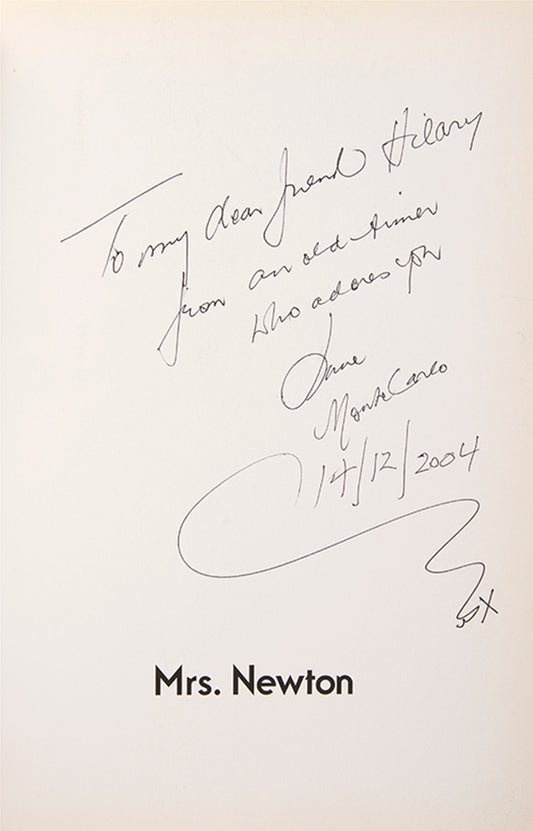 To my dear friend Hilary
from an old timer
who adores you
June
Monte Carlo
14/12/2004
X
Mrs. Newton